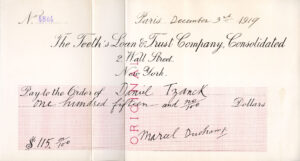 No.
Paris December 3rd 1919
The Teeth's Loan & Trust Company, Consolidated
2 Wall Street.
New York.
Pay to the Order of Daniel Tzanck
one hundred fifteen and no/100 Dollars
ORIGINAL
$115. no/100
Marcel Duchamp